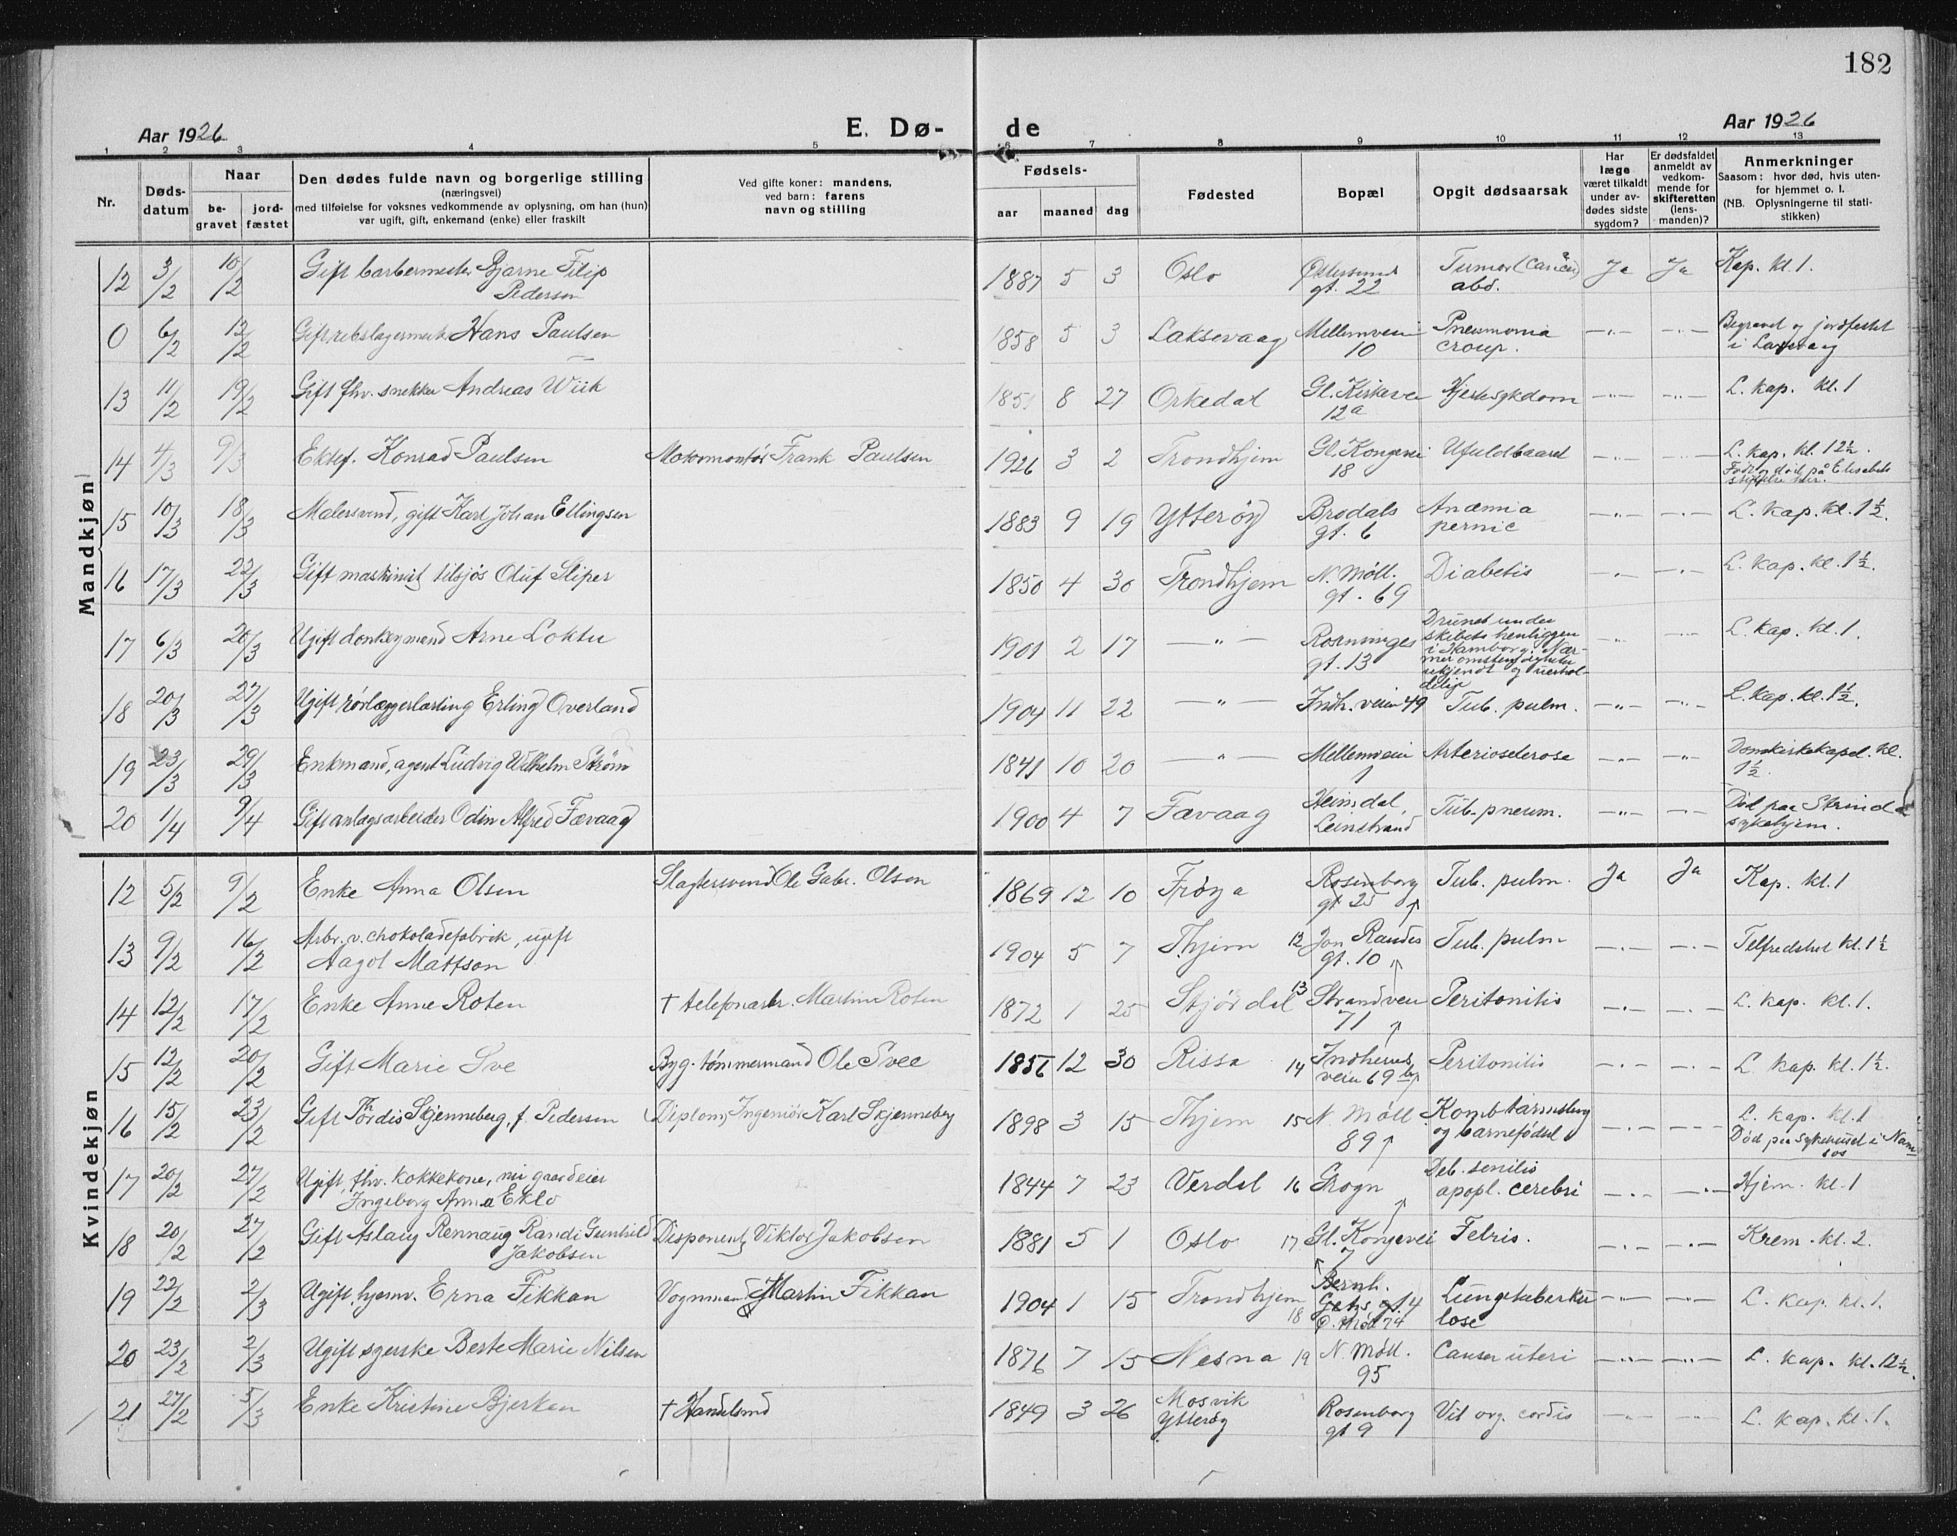 182
Aar 1926 E. Dø- de Aar 1926
1 2 3 4 5 6 7 8 9 10 11 12 13
Nr. Døds-datum Naar be-gravet jord-fæstet Den dødes fulde navn og borgerlige stilling (næringsvei) med tilføielse for voksnes vedkommende av oplysning, om han (hun) var ugift, gift, enkemand (enke) eller fraskilt Ved gifte koner: mandens, ved barn: farens navn og stilling Fødsels- aar maaned dag Fødested Bopæl Opgit dødsaarsak Har læge været tilkaldt under av-dødes sidste sygdom? Er dødsfaldet anmeldt av vedkom-mende for skifteretten (lens-manden)? Anmerkninger Saasom: hvor død, hvis uten-for hjemmet o. l. (NB. Oplysningerne til stati-stikken)
Mandkjøn
12 3/2 10/2 Gift barbermester Bjarne Filip Pedersen 1887 5 3 Oslo Østersunds gt. 22 Tumor (Cancer) abd. Ja Ja Kap. kl. 1.
0 6/2 12/2 Gift rebslagermester Hans Paulsen 1858 5 3 Laksevaag Mellemveien 10 Pneumonia croup. -"- -"- Begravet og jordfestet i Laxevaag
13 11/2 19/2 Gift fhv. snekker Andreas Wiik 1851 8 27 Orkedal Gl. Kirkevei 12a Hjertesykdom -"- -"- L. kap. kl. 1
14 4/3 9/3 Ektef. Konrad Paulsen Motormontør Frank Paulsen 1926 3 2 Trondhjem Gl. Kongevei 18 Ufuldbaaret -"- -"- L. kap. kl. 12½. Født og død på Elisabeths stiftelse her.
15 10/3 18/3 Malersvend, gift Karl Johan Ellingsen 1883 9 19 Ytterøy Brodals gt. 6 Anæmia pernic -"- -"- L. kap. kl. 1½.
16 17/3 22/3 Gift maskinist tilsjøs Oluf Sliper 1850 4 30 Trondhjem N. Møll. gt. 69 Diabetis -"- -"- L. kap. kl. 1½.
17 6/3 20/3 Ugift donkeymand Arne Loktu 1901 2 17 -"- Ronninges gt. 13 Drunet under skibets henliggen i Hamborg. Nær-mer omstendigheter ukjendt og uerhol-delig -"- -"- L. kap. kl. 1.
18 20/3 27/3 Ugift rørlæggerlærling Erling Overland 1904 11 22 -"- Indh. veien 49 Tub. pulm. -"- -"- L. kap. kl. 1½.
19 23/3 29/3 Enkmand, agent Ludvig Wilhelm Strøm 1841 10 20 -"- Mellemveien 1 Arteriosclerose -"- -"- Domkirkekapel. kl. 1½.
20 1/4 9/4 Gift anlægsarbeider Odin Alfred Fævaag 1900 4 7 Fævaag Heimdal, Leinstrand Tub. pneum. -"- -"- Død paa Strinda sykehjem.
Kvindekjøn
12 5/2 9/2 Enke Anna Olsen Slagtersvend Ole Gabr. Olsen 1869 12 10 Frøya Rosenborg gt 25 Tub. pulm. Ja Ja Kap. kl. 1
13 9/2 16/2 Arbr. v. chokoladefabrik, ugift Aagot Mattson 1904 5 7 Thjem 12 Jon Raudes gt. 10 Tub. pulm -"- -"- Tilfredshet kl. 1½
14 12/2 17/2 Enke Anne Roten † telefonarbr. Martin Roten 1872 1 25 Stjørdal 13 Strandveien 71 Peritonitis -"- -"- L. kap. kl. 1.
15 12/2 20/2 Gift Marie Sve Byg. tømmermand Ole Svee 1856 12 30 Rissa 14 Indherreds veien 69 b Peritonitis -"- -"- L. kap. kl. 1½.
16 15/2 23/2 Gift Tordis Skjenneberg, f. Pedersen Diplom. Ingeniør Karl Skjenneberg 1898 3 15 Thjem 15 N. Møll 89 Komb. tarmslyng og barnefødsel -"- -"- L. kap. kl. 1 Død paa sykehuset i Nam-sos
17 20/2 27/2 Ugift, fhv. kokkekone, nu gaardeier Ingeborg Anna Eklo 1844 7 23 Verdal 16 Grogn Deb. senilis apopl. cerebri -"- -"- Hjem. kl. 1
18 20/2 27/2 Gift Aslaug Rennaug Randi Gunhild Jakobsen Disponent Viktor Jakobsen 1881 5 1 Oslo 17 Gl. Kongevei 7 Febris. -"- -"- Krem. kl. 2.
19 22/2 2/3 Ugift hjemv. Erna Fikkan Vognmand Martin Fikkan 1904 1 15 Trondhjem 18 Bernh. Getz gt. 4 Ø. Møll 74 Lungetuberku lose -"- -"- L. kap. kl. 1.
20 23/2 2/3 Ugift syerske Berte Marie Nilsen 1876 7 15 Nesna 19 N. Møll. 95 Canser uteri -"- -"- L. kap. kl. 12½.
21 27/2 5/3 Enke Kristine Bjerken † Handelsmd 1849 3 26 Mosvik Ytterøy Rosenborg gt 9 Vit org. cordis -"- -"- L. kap. kl. 1.